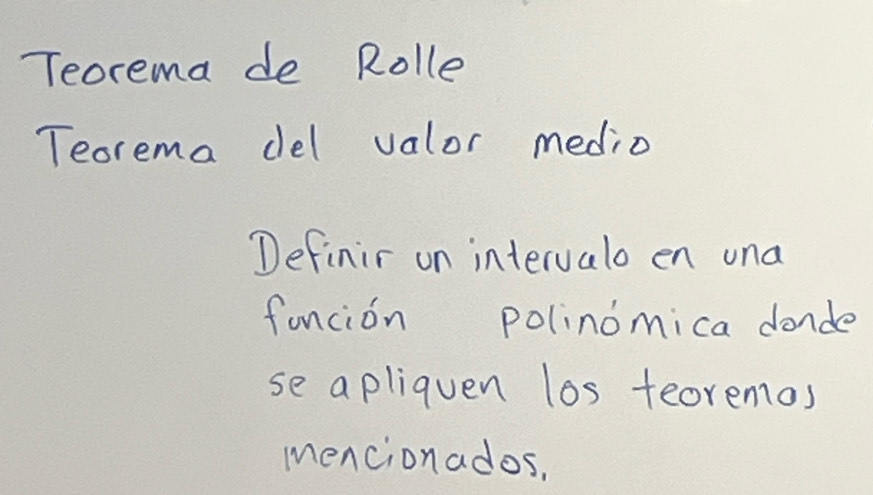 Teorema de Rolle
Teorema del valor medio
Definir un intervalo en una
función polinómica donde
se apliquen los teoremas
mencionados.